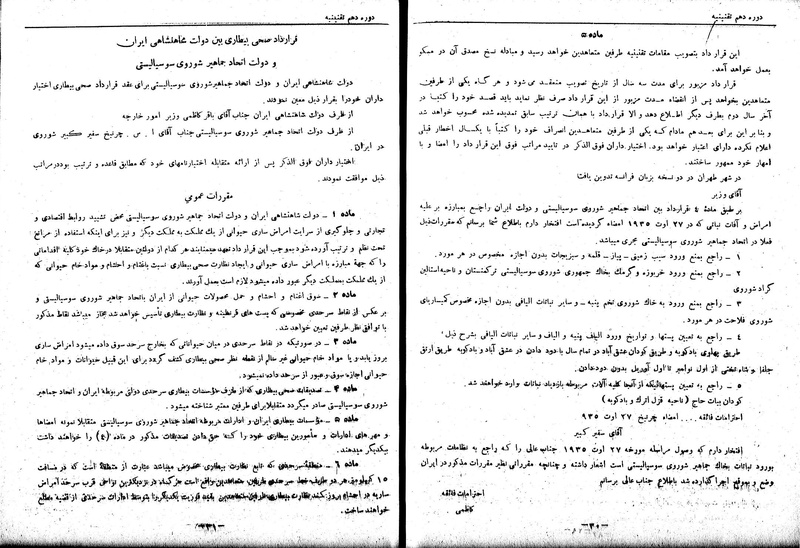 دوره دهم تقنینیه
ماده ۵
این قرار داد بتصویب مقامات تقنینیه طرفین متعاهدین خواهد رسید و مبادله نسخ مصدق آن در مسکو
بعمل خواهد آمد.
قرار داد مزبور برای مدت سه سال از تاریخ تصویب منعقد می شود و هر گاه یکی از طرفین
متعاهدین بخواهد پس از انقضاء مدت مزبور از این قرار داد صرف نظر نماید باید قصد خود را کتباً در
آخر سال دوم بطرف دیگر اطلاع دهد والا قرار داد با همان ترتیب سابق تمدید شده محسوب خواهد شد
و بنا بر این برای بعد هم مادام که یکی از طرفین متعاهدین انصراف خود را کتباً با یکسال اخطار قبلی
اعلام نکرده دارای اعتبار خواهد بود. اختیار داران فوق الذکر در تایید مراتب فوق این قرار داد را امضا و با
امهار خود ممهور ساختند.
در شهر طهران در دو نسخه بزبان فرانسه تدوین یافت
آقای وزیر
بر طبق ماده ٤ قرارداد بین اتحاد جماهیر شوروی سوسیالیستی و دولت ایران راجع بمبارزه بر علیه
امراض و آفات نباتی که در ۲۷ اوت ۱۹۳۵ امضاء گردیده است افتخار دارم باطلاع شما برسانم که مقررات ذیل
فعلا در اتحاد جماهیر شوروی سوسیالیستی مجری میباشد.
۱ – راجع بمنع ورود سیب زمینی – پیاز – قلمه و سبزیجات بدون اجازه مخصوص در هر مورد.
۲ – راجع بمنع ورود خربوزه و گرمک بخاک جمهوری شوروی سوسیالیستی ترکمنستان و ناحیه استالین
گراد شوروی
۳ – راجع بمنع ورود به خاک شوروی تخم پنبه – و سایر نباتات الیافی بدون اجازه مخصوص کمیساریای
شوروی فلاحت در هر مورد.
٤ – راجع به تعیین پستها و تواریخ ورود الیاف پنبه و الیاف و سایر نباتات الیافی بشرح ذیل:
طریق پهلوی بادکوبه و طریق گودان عشق آباد در تمام سال با دود دادن در عشق آباد و بادکوبه طریق ارتق
جلفا و شاه تختی از اول نوامبر تا اول آوریل بدون دود دادن.
۵ – راجع به تعیین پستهائیکه از آنجا کلیه آلات مربوطه بازدیاد نباتات وارد خواهند شد.
گودان بیات حاج (ناحیه قزل اترک و بادکوبه)
احترامات فائقه .... امضاء چرنیخ ۲۷ اوت ۹۳۵
آقای سفیر کبیر
افتخار دارم که وصول مراسله مورخه ۲۷ اوت ۱۹۳۵ جنابعالی را که راجع به نظامات مربوطه
بورود نباتات بخاک جماهیر شوروی سوسیالیستی است اشعار داشته و چنانچه مقرراتی نظیر مقررات مذکور در ایران
وضع و بموقع اجرا گذارده شد باطلاع جنابعالی برسانم
احترامات فائقه
کاظمی
–۳۰–
دوره دهم تقنینیه
قرارداد صحی بیطاری بین دولت شاهنشاهی ایران
و دولت اتحاد جماهیر شوروی سوسیالیستی
دولت شاهنشاهی ایران و دولت اتحاد جماهیر شوروی سوسیالیستی برای عقد قرارداد صحی بیطاری اختیار
داران خود را بقرار ذیل معین نمودند.
از طرف دولت شاهنشاهی ایران جناب آقای باقر کاظمی وزیر امور خارجه
از طرف دولت اتحاد جماهیر شوروی سوسیالیستی جناب آقای ا. س. چرنیخ سفیر کبیر شوروی
در ایران.
اختیار داران فوق الذکر پس از ارائه متقابله اختیارنامهای خود که مطابق قاعده و ترتیب بود در مراتب
ذیل موافقت نمودند.
مقررات عمومی
ماده ۱ – دولت شاهنشاهی ایران و دولت اتحاد جماهیر شوروی سوسیالیستی محض تشیید روابط اقتصادی و
تجارتی و جلوگیری از سرایت امراض ساری حیوانی از یک مملکت به مملکت دیگر و نیز برای اینکه استفاده از مراتع
تحت نظم و ترتیب آورده شود بموجب این قرار داد تعهد مینمایند هر کدام از دولتین متقابلا در خاک خود کلیه اقداماتی
را که جهة مبارزه با امراض ساری حیوانی و ایجاد نظارت صحی بیطاری نسبت باغنام و احشام و مواد خام حیوانی که
از یک مملکت بمملکت دیگر عبور داده میشود لازم است بعمل آورند.
ماده ۲ – سوق اغنام و احشام و حمل محصولات حیوانی از ایران باتحاد جماهیر شوروی سوسیالیستی و
بر عکس از نقاط سرحدی مخصوصی که پست های قرنطینه و نظارت بیطاری تأسیس خواهد شد مجاز میباشد نقاط مذکور
با توافق نظر طرفین تعیین خواهد شد.
ماده ۳ – در صورتیکه در نقاط سرحدی در میان حیواناتی که بخارج سرحد سوق داده میشود امراض ساری
بروز یابد و یا مواد خام حیوانی غیر سالم از نقطه نظر صحی بیطاری کشف گردد برای این قبیل حیوانات و مواد خام
حیوانی اجازه سوق و عبور از سرحد داده نمیشود.
ماده ٤ – تصدیقات صحی بیطاری که از طرف مؤسسات بیطاری سرحدی دولتی مربوطه ایران و اتحاد جماهیر
شوروی سوسیالیستی صادر میگردد متقابلا برای طرفین معتبر شناخته میشود.
ماده ۵ – مؤسسات بیطاری ایران و ادارات مربوطه اتحاد جماهیر شوروی سوسیالیستی متقابلا نمونه امضاها
و مهر های ادارات و مأمورین بیطاری خود را که حق دادن تصدیقات مذکور در ماده (٤) را خواهند داشت
بیکدیگر میدهند.
ماده ٦ – منطقه سرحدی که تابع نظارت بیطاری مخصوص میباشد عبارت از منطقه است که در مسافت
۱۵ کیلومتر در هر دو طرف خط سرحدی طرفین متعاهدین واقع است هر گاه در نزدیکترین نواحی قرب سرحد امراض
ساریه در احشام بروز کند نظارت بیطاری طرفین متعاهدین باید فوریت یکدیگر را بتوسط ادارات سرحدی از قضیه مطلع
خواهند ساخت.
–۳۱–